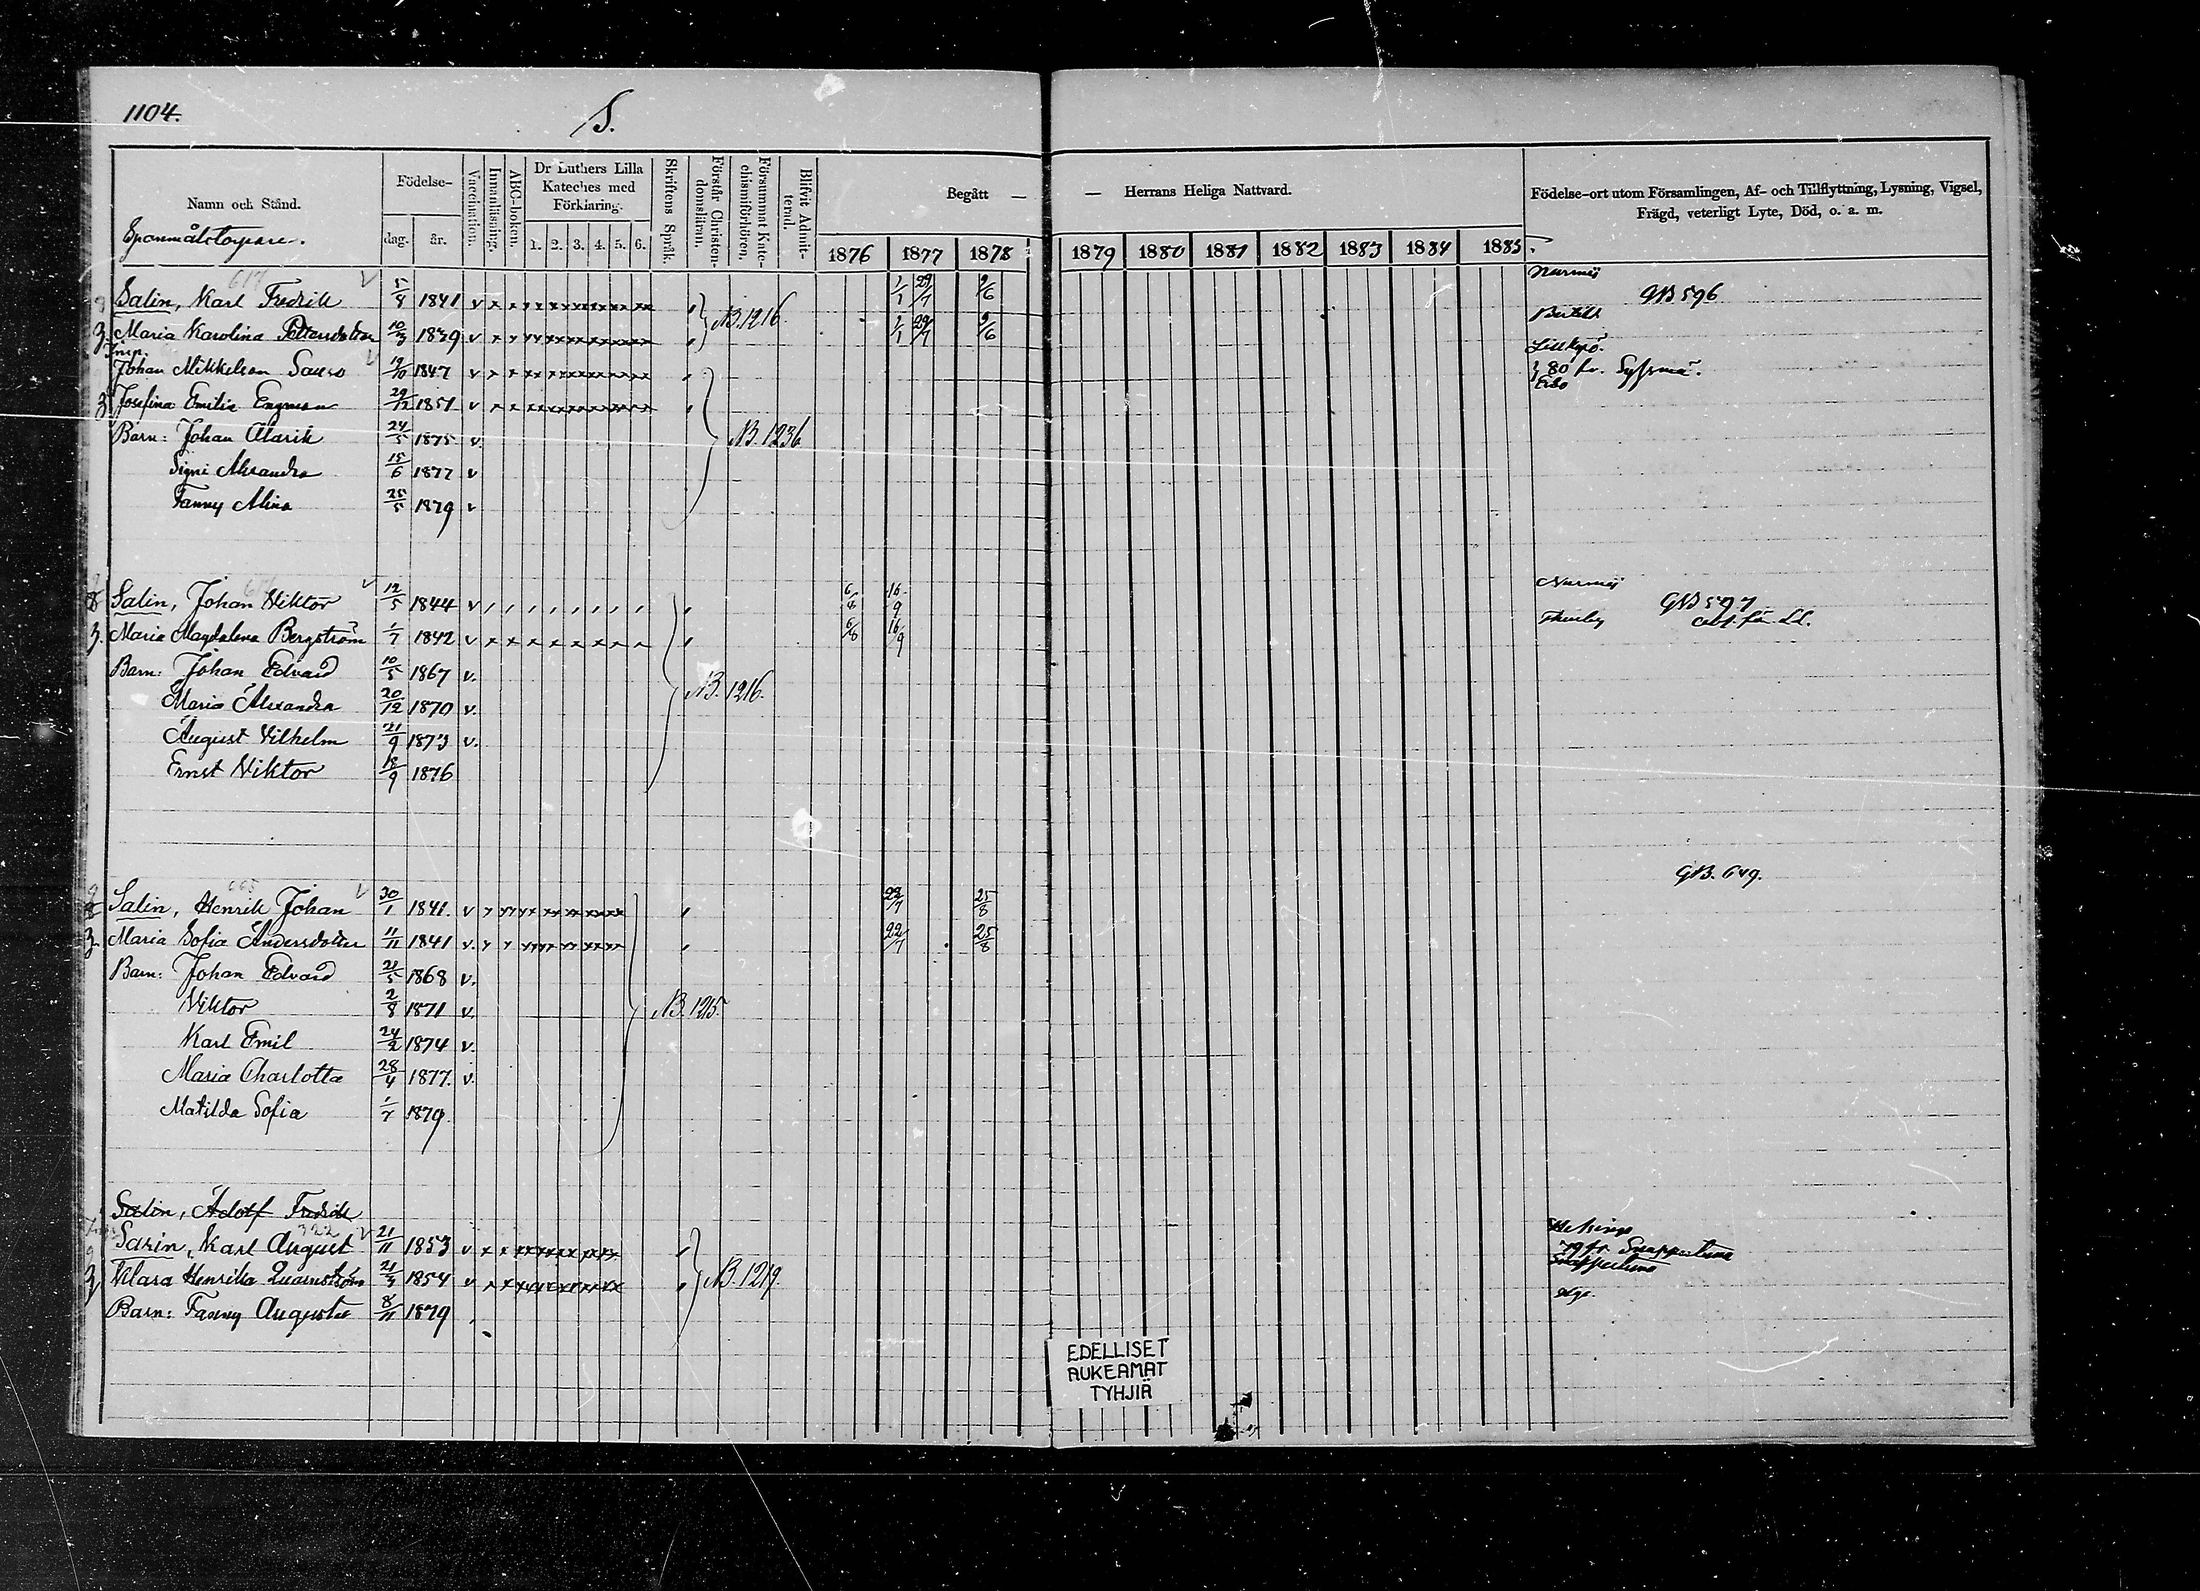 1104.
S.
Namn och Stånd.
Födelse-
dag.
år.
Vaccination.
Innanläsning.
ABC-boken.
Dr Luthers Lilla
Kateches med
Förklaring.
1. 2. 3. 4. 5. 6.
Skriftens Språk.
Förstår Christen-
domsläran.
Försummat Kate-
chismiförhören.
Blifvit Admit-
terad.
Begått — — Herrans Heliga Nattvard.
1876 1877 1878 1879 1880 1881 1882 1883 1884 1885
Födelse-ort utom Församlingen, Af- och Tillflyttning, Lysning, Vigsel,
Frägd, veterligt Lyte, Död, o. a. m.
617
Salin, Karl Fredrik 5/8 1841 v 1/1 29/7 9/6 Nurmis GB 596
N.B. 1216.
3. Maria Karolina Pettersdotter 10/3 1839 v 1/1 29/7 9/6
Johan Mikkelson 19/10 1847 v 80 fr. Sysmä.
3 Josefina Emilia Engman 29/12 1851 v Esbo
Barn: Johan Alarik 24/5 1875 v N.B. 1236
Signi Alexandra 15/6 1877 v
Fanny Alina 25/5 1879 v
8 Salin, Johan Viktor 12/5 1844 v 6/8 16/9 Nurmis GB 597
3. Maria Magdalena Bergström 1/7 1842 v 6/8 16/9 Thusby
Barn: Johan Edvard 10/5 1867 v.
N.B. 1216.
Maria Alexandra 20/12 1870 v.
August Vilhelm 21/9 1873 v.
Ernst Viktor 18/9 1876
GB. 649.
Salin, Henrik Johan 30/1 1841. v 22/7 25/8
3 Maria Sofia Andersdotter 11/11 1841 v. 22/7 25/8
Barn: Johan Edvard 21/5 1868 v.
Viktor 2/8 1871 v. N.B. 1215.
Karl Emil 24/2 1874 v.
Maria Charlotta 28/4 1877. v.
Matilda Sofia 1/7 1879.
Salin, Adolf Fredrik
322
Sarin, Karl August 21/11 1853 v Helsinge
79 fr. Snappertuna
3 Klara Henrika Quarnström 21/3 1854 v N.B. 1219. Snappertuna
Barn: Fanny Augusta 8/11 1879
EDELLISET
AUKEAMAT
TYHJIÄ